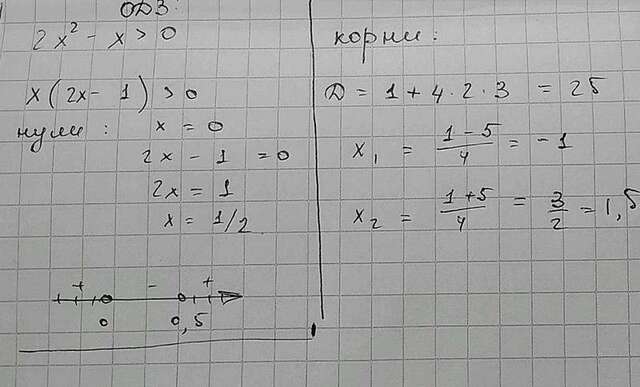 ОДЗ:
2x² - x > 0
x(2x - 1) > 0
нули: x = 0
2x - 1 = 0
2x = 1
x = 1/2
+ - +
0 0,5
корни:
D = 1 + 4 · 2 · 3 = 25
x₁ = (1 - 5)/4 = -1
x₂ = (1 + 5)/4 = 3/2 = 1,5